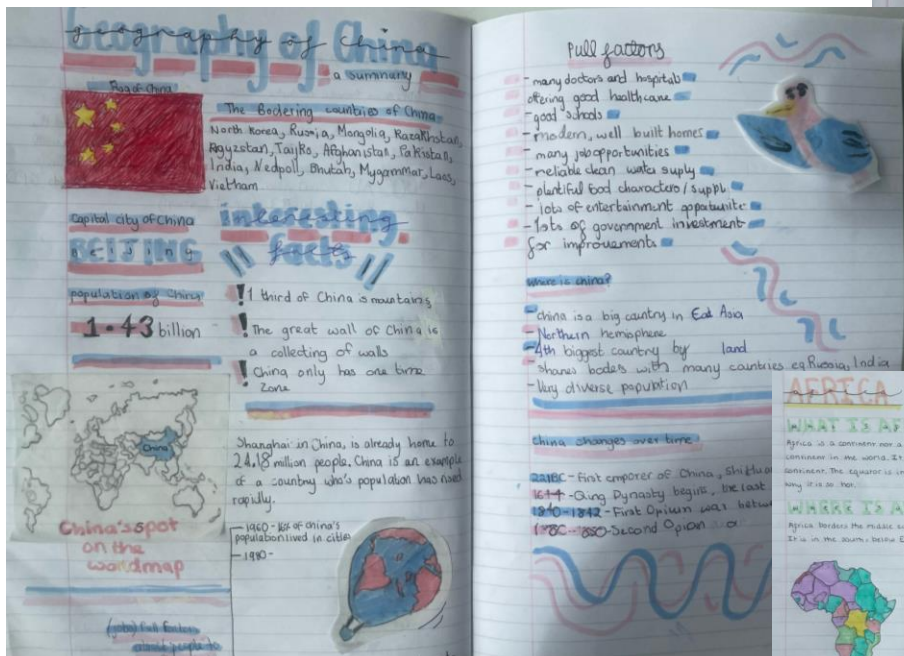 geography of China
a summary
Flag of China
The Bodering counties of China
North Korea, Russia, Mongolia, Kazakhstan,
Afghanistan, Pakistan,
India, Nedpoll, Bhutan, Mygammar, Laos,
Vietnam
Capital city of China
BEIJING
population of China
1.43 billion
interesting
facts
! 1 third of China is mountains
! The great wall of China is
a collecting of walls
! China only has one time
zone
China
China's spot
on the
worldmap
Shanghai in China, is already home to
24,18 million people. China is an example
of a country who's population has rised
rapidly.
1960 - of china's
population lived in cities
- 1980 -
(jobs) Pull Factors
people to
Pull factors
- many doctors and hospitals
offering good healthcare
- good schools
- modern, well built homes
- many job opportunities
- reliable clean water suply
- plentiful food characters / suppl
- lots of entertainment
- lots of government investment
for improvements
where is china?
- china is a big country in East Asia
- Northern hemisphere
- 4th biggest country by land
- shares boders with many countries eg Russia, India
- Very diverse population
china changes over time
221BC - First emporer of China,
1644 - Qing Dynasty begins, the last
1840 - 1842 - First Opium was
- Second Opium
AFRICA
WHAT IS AF
Africa is a continent not a
continent in the world. It
continent. The equator is in
why it is so hot.
WHERE IS A
Africa borders the middle
It is in the south, below E